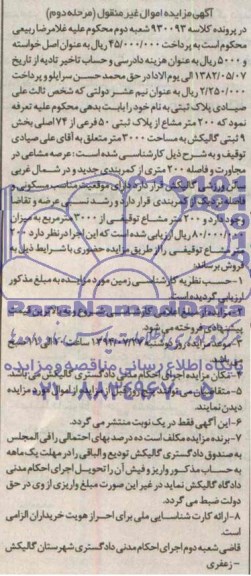 آگهی مزایده اموال غیر منقول (مرحله دوم)
در پرونده کلاسه ۹۳۰۰۹۳ شعبه دوم محکوم علیه غلامرضا ربیعی
محکوم است به پرداخت ۴۵/۰۰۰/۰۰۰ ریال به عنوان اصل خواسته
و ۵۰۰۰ ریال به عنوان هزینه دادرسی و حساب تاخیر تادیه از تاریخ
۱۳۸۲/۰۵/۰۷ الی یوم الادا در حق محمد حسن سرایلو و پرداخت
۲/۲۵۰/۰۰۰ ریال به عنوان نیم عشر دولتی که شخص ثالث علی
صیادی پلاک ثبتی به نام خود را بابت بدهی محکوم علیه تعرفه
نمود که ۲۰۰ متر مشاع از پلاک ثبتی ۵۰ فرعی از ۷۴ اصلی بخش
۹ ثبتی گالیکش به مساحت ۳۰۰۰ متر متعلق به آقای علی صیادی
توقیف و به شرح ذیل کارشناسی شده است: عرصه مشاعی در
مجاورت و فاصله ۲۰۰ متری از کمربندی جدید و در شمال غربی
گالیکش قرار دارد دارای موقعیت مناسب مسکونی و
فاصله نزدیک از کمربندی قرار دارد و رشد نسبی عرضه و تقاضا
وجود دارد و ۲۰۰ متر مشاع توقیفی از ۳۰۰۰ متر مربع به میزان
۸۰/۰۰۰/۰۰۰ ریال ارزیابی شده است که این اجرا در نظر دارد ۲۰۰
متر مشاع توقیفی را از طریق مزایده حضوری با شرایط ذیل به
فروش برساند:
۱-حسب نظریه کارشناسی زمین مورد مزایده به مبلغ مذکور
ارزیابی گردیده است.
شروع و به بالاترین قیمت
پیشنهادی فروخته می شود.
۳-موعد مزایده روز دوشنبه
۴-مکان مزایده اجرای احکام مدنی دادگستری گالیکش می باشد.
۵-متقاضیان
از اموال مورد مزایده
دیدن نمایند.
۶-این آگهی فقط در یک نوبت منتشر می گردد.
۷-برنده مزایده مکلف است ده درصد بهای احتمالی را فی المجلس
به صندوق دادگستری گالیکش تودیع و الباقی را در مهلت یک ماهه
به حساب مذکور واریز و فیش آن را تحویل اجرای احکام مدنی
دادگاه گالیکش نماید در غیر این صورت مبلغ واریزی از وی در حق
دولت ضبط می گردد.
۸-ارائه کارت شناسایی ملی برای احراز هویت خریداران الزامی
است.
قاضی شعبه دوم اجرای احکام مدنی دادگستری شهرستان گالیکش
- زعفری
پایگاه اطلاع رسانی مناقصه و مزایده
۰۲۱-۸۸۳۴۹۶۷۰-۵